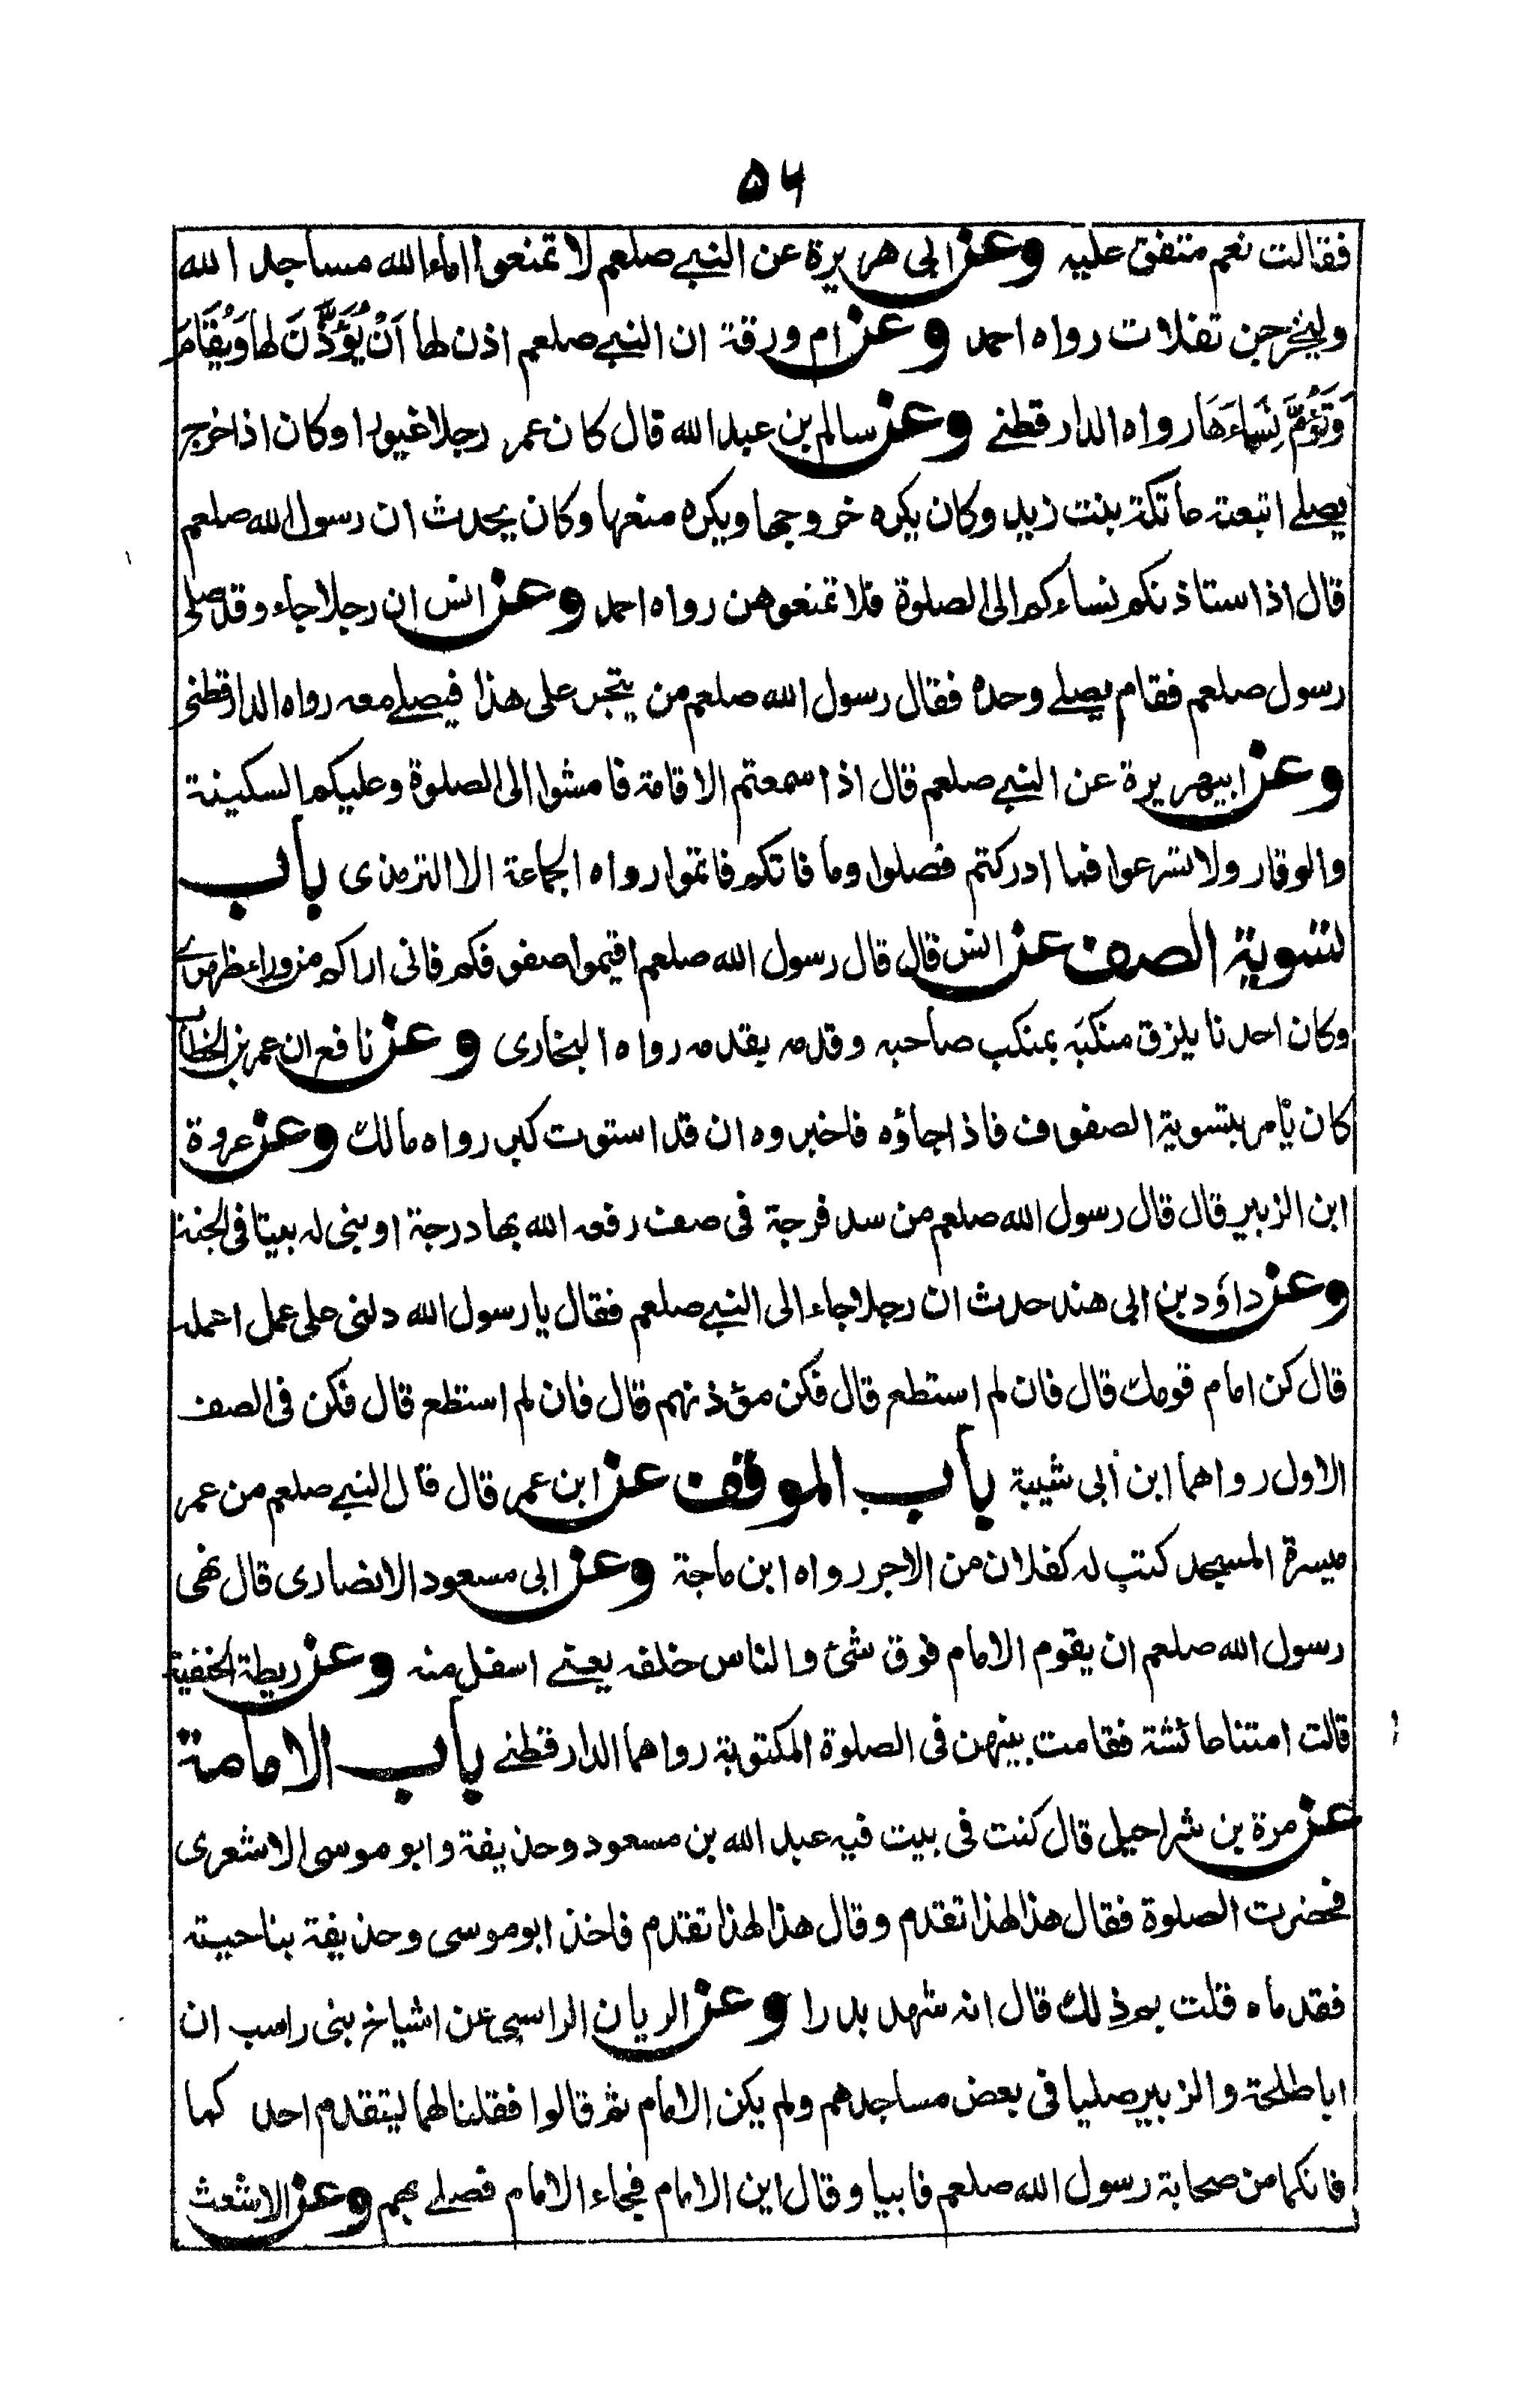 ۵۶
فقالت نعم متفق عليه وعن ابى هريرة عن النبي صلعم لا تمنعوا اماء الله مساجد الله
وليخرجن تفلات رواه احمد وعن ام ورقة ان النبي صلعم اذن لها اَنْ يُؤَذَّنَ لها وَيُقَامَ
وَتَؤُمَّ نِسَاءَهَا رواه الدارقطني وعن سالم بن عبد الله قال كان عمر رجلا غيورا وكان اذا خرج
يصلي اتبعته عاتكة بنت زيد وكان يكره خروجها ويكره منعها وكان يحدث ان رسول الله صلعم
قال اذا استاذنكم نساءكم الى الصلوة فلا تمنعوهن رواه احمد وعن انس ان رجلا جاء وقد صلى
رسول صلعم فقام يصلي وحده فقال رسول الله صلعم من يتجر على هذا فيصلي معه رواه الدارقطنى
وعن ابيهريرة عن النبي صلعم قال اذا سمعتم الاقامة فامشوا الى الصلوة وعليكم السكينة
والوقار ولا تسرعوا فما ادركتم فصلوا وما فاتكم فاتموا رواه الجماعة الا الترمذى باب
تسوية الصف عن انس قال قال رسول الله صلعم اقيموا صفوفكم فانى اراكم من وراء ظهرى
وكان احدنا يلزق منكبَه بمنكب صاحبه وقدمه بقدمه رواه البخارى وعن نافع ان عمر بن الخطاب
كان يأمر بتسوية الصفوف فاذا جاؤه فاخبروه ان قد استوت كبر رواه مالك وعن عروة
ابن الزبير قال قال رسول الله صلعم من سد فرجة فى صف رفعه الله بها درجة او بنى له بيتا فى الجنة
وعن داؤد بن ابى هند حدث ان رجلا جاء الى النبي صلعم فقال يا رسول الله دلنى على عمل اعمله
قال كن امام قومك قال فان لم استطع قال فكن مؤذنهم قال فان لم استطع قال فكن فى الصف
الاول رواهما ابن أبى شيبة باب الموقف عن ابن عمر قال قال النبي صلعم من عمر
ميسرة المسجد كتب له كفلان من الاجر رواه ابن ماجة وعن ابى مسعود الانصارى قال نهى
رسول الله صلعم ان يقوم الامام فوق شئ والناس خلفه يعني اسفل منه وعن ريطة الحنفية
قالت امتنا عائشة فقامت بينهن فى الصلوة المكتوبة رواهما الدارقطني باب الامامة
عن مرة بن شراحيل قال كنت فى بيت فيه عبد الله بن مسعود وحذيفة وابو موسى الاشعرى
فحضرت الصلوة فقال هذا لهذا تقدم وقال هذا لهذا تقدم فاخذ ابو موسى وحذيفة بناحيته
فقدماه قلت بم ذلك قال انه شهد بدرا وعن الريان الراسبى عن اشياخ بنى راسب ان
ابا طلحة والزبير صليا فى بعض مساجدهم ولم يكن الامام ثم قالوا فقلنا لهما ليتقدم احد كما
فانكما من صحابة رسول الله صلعم فابيا وقال اين الامام فجاء الامام فصلي بهم وعن الاشعث